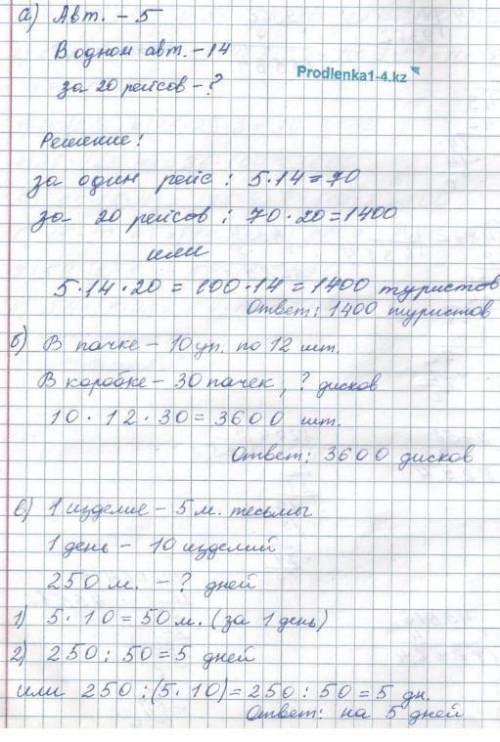 а) Авт. – 5
В одном авт. – 14
за 20 рейсов – ?
Prodlenka1-4.kz
Решение:
за один рейс: 5·14=70
за 20 рейсов: 70·20=1400
или
5·14·20 = 100·14 = 1400 туристов
Ответ: 1400 туристов
б) В пачке – 10 уп. по 12 шт.
В коробке – 30 пачек, ? дисков
10·12·30=3600 шт.
Ответ: 3600 дисков
в) 1 изделие – 5 м. тесьмы
1 день – 10 изделий
250 м. – ? дней
1) 5·10=50 м. (за 1 день)
2) 250:50=5 дней
или 250:(5·10)=250:50=5 дн.
Ответ: на 5 дней